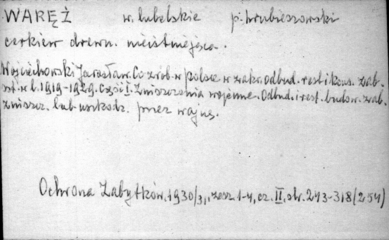 WARĘŻ w. lubelskie p. hrubieszowski
cerkiew drewn. nieistniejąca.
Wojciechowski Jarosław. Co zrob. w Polsce w zakr. odbud. rest. i kons. zab.
szt. w l. 1919-1929. Część I. Zniszczenia wojenne. Odbud. i rest. budow. zab.
zniszcz. lub uszkodz. przez wojnę.
Ochrona Zabytków. 1930/31, zesz. 1-4, cz. II, str. 243-318 (254)